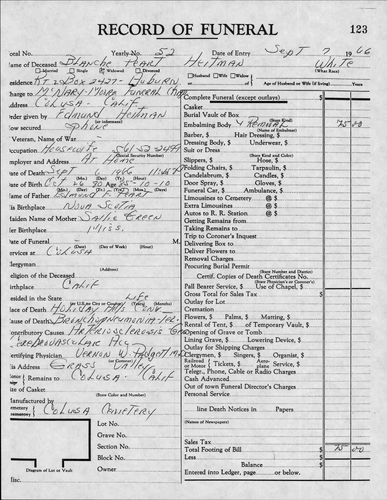 RECORD OF FUNERAL
123
otal No. Yearly No. 52 Date of Entry Sept 7 1966
ame of Deceased Blanche Peart Heitman White
(What Race)
Married Single Widowed Divorced
Husband Wife Widow of Age of Husband or Wife (if living) Years
esidence Rt 2 Box 2427 - Auburn
harge to McNary-Moore Funeral
ddress Colusa - Calif
rder given by Edmund Heitman
(or informant)
ow secured Phone
Veteran, Name of War
ccupation Housewife
mployer and Address At Home
ate of Death Sept 6 1966
ate of Birth Oct 26 80 Age 85-10-10
ame of Father Edmund Peart
is Birthplace Nova Scotia
aiden Name of Mother Sallie Green
er Birthplace Miss.
ate of Funeral M.
(Date) (Day of Week) (Hour)
ervices at Colusa
(Address)
lergyman
eligion of the Deceased
irthplace Calif
esided in the State Life
lace of Death Holiday Hills Conv.
ause of Death Bronchopneumonia
ontributory Causes Arteriosclerosis
Cerebrovascular
ertifying Physician Vernon W. Padgett
is Address Grass Valley
Remains to Colusa Calif
(Size and Kind)
ize of Casket
(State Color and Number)
anufactured by
emetery Colusa Cemetery
Lot No.
Grave No.
Section No.
Block No.
Owner
Diagram of Lot or Vault
Complete Funeral (except outlays) $
Casket
Burial Vault of Box
(State Kind)
Embalming Body & Removal 75 00
(Name of Embalmer)
Barber, $ Hair Dressing, $
Dressing Body, $ Underwear, $
Suit or Dress
(State Kind and Color)
Slippers, $ Hose, $
Folding Chairs, $ Tarpaulin, $
Candelabrum, $ Candles, $
Door Spray, $ Gloves, $
Funeral Car, $ Ambulance, $
Limousines to Cemetery @ $
Autos to Cemetery @ $
Autos to R. R. Station @ $
Getting Remains from
Taking Remains to
Trip to Coroner's Inquest
Delivering Box to
Deliver Flowers to
Removal Charges
Procuring Burial Permit
(State Number and District)
Certif. Copies of Death Certificates No.
(State Physician's or Coroner's)
Pall Bearer Service, $ Use of Chapel, $
Gross Total for Sales Tax $
Outlay for Lot
Cremation
Flowers, $ Palms, $ Matting, $
Rental of Tent, $ of Temporary Vault, $
Opening of Grave or Tomb
Lining Grave, $ Lowering Device, $
Outlay for Shipping Charges
Clergymen, $ Singers, $ Organist, $
Railroad or Motor Tickets, $ Aeroplane Service, $
Telegr., Phone, Cable or Radio Charges
Cash Advanced
Out of town Funeral Director's Charges
Personal Service
line Death Notices in Papers
(Names of Newspapers)
Sales Tax
Total Footing of Bill $ 75 00
Less $
Balance $
Entered into Ledger, page or below.